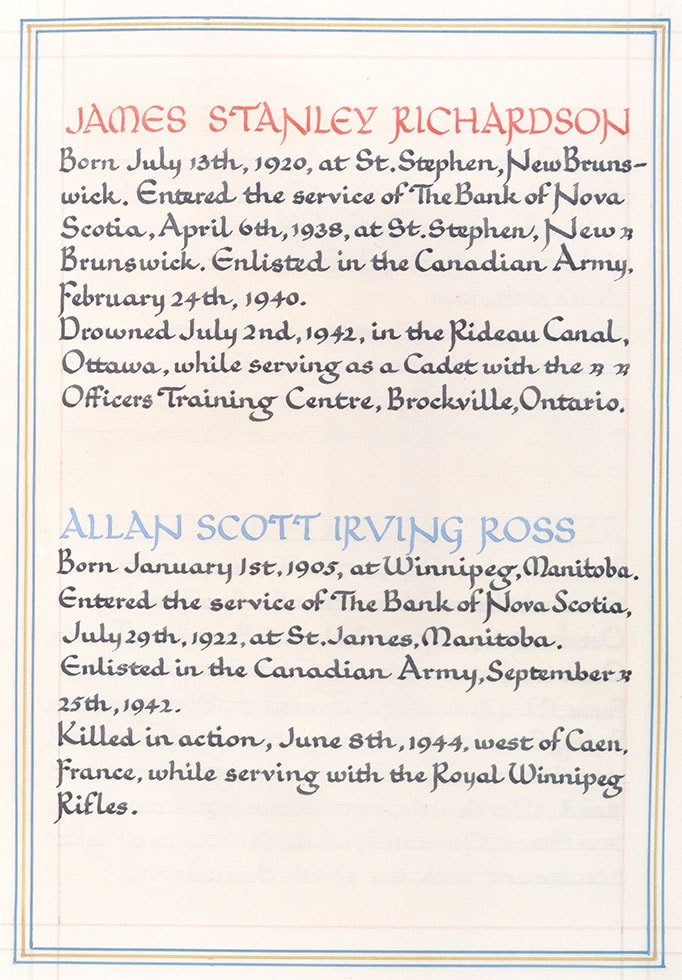 JAMES STANLEY RICHARDSON
Born July 13th, 1920, at St. Stephen, New Bruns-
wick. Entered the service of The Bank of Nova
Scotia, April 6th, 1938, at St. Stephen, New
Brunswick. Enlisted in the Canadian Army,
February 24th, 1940.
Drowned July 2nd, 1942, in the Rideau Canal,
Ottawa, while serving as a Cadet with the
Officers Training Centre, Brockville, Ontario.
ALLAN SCOTT IRVING ROSS
Born January 1st, 1905, at Winnipeg, Manitoba.
Entered the service of The Bank of Nova Scotia,
July 29th, 1922, at St. James, Manitoba.
Enlisted in the Canadian Army, September
25th, 1942.
Killed in action, June 8th, 1944, west of Caen,
France, while serving with the Royal Winnipeg
Rifles.